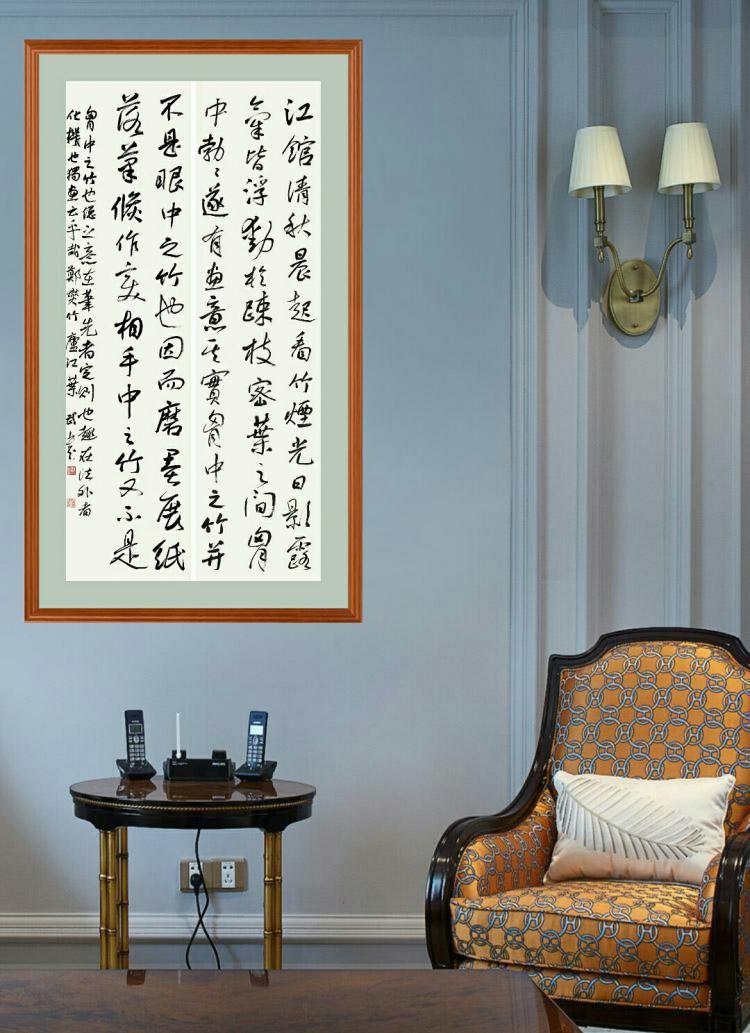 江館清秋晨起看竹煙光日影露
氣皆浮動於疎枝密葉之間胷
中勃〻遂有畫意其實胷中之竹并
不是眼中之竹也因而磨墨展紙
落筆倏作變相手中之竹又不是
胷中之竹也總之意在筆先者定則也趣在法外者
化機也獨畫云乎哉鄭燮竹廬江葉武